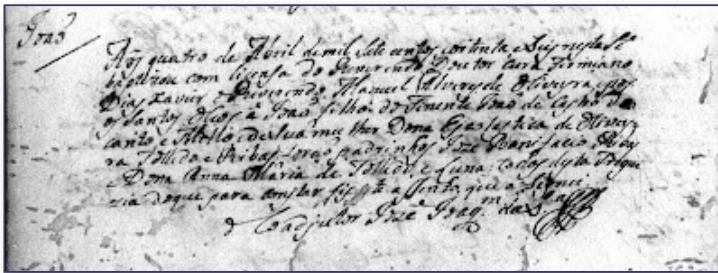 João
Aos quatro de Abril de mil sete centos e oitenta e Seis nesta Sé
baptizou com licensa do Reverendo Doutor cura Firmiano
Dias Xavier o Reverendo Manuel Alveres de Oliveyra, e pos
os Santos Oleos a João filho do Tenente João de Castro do
canto e Mello, e de Sua mulher Dona Escolastica de Olivey
ra Tolledo e Ribas, forão padrinhos José Bonifacio Ribey
ra e Dona Anna Maria de Tolledo e Luna, todos desta Fregue
sia do que para constar fiz este aSento, que aSignei
o Coadjutor José Joaqm. da S.a